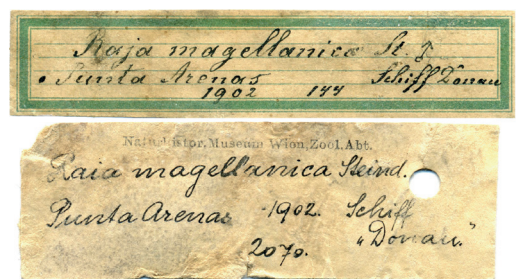 Raja magellanica St. J.
Punta Arenas Schiff Donau
1902 144
Naturhistor. Museum Wien, Zool. Abt.
Raia magellanica Steind.
Punta Arenas 1902. Schiff
„Donau.”
2070.